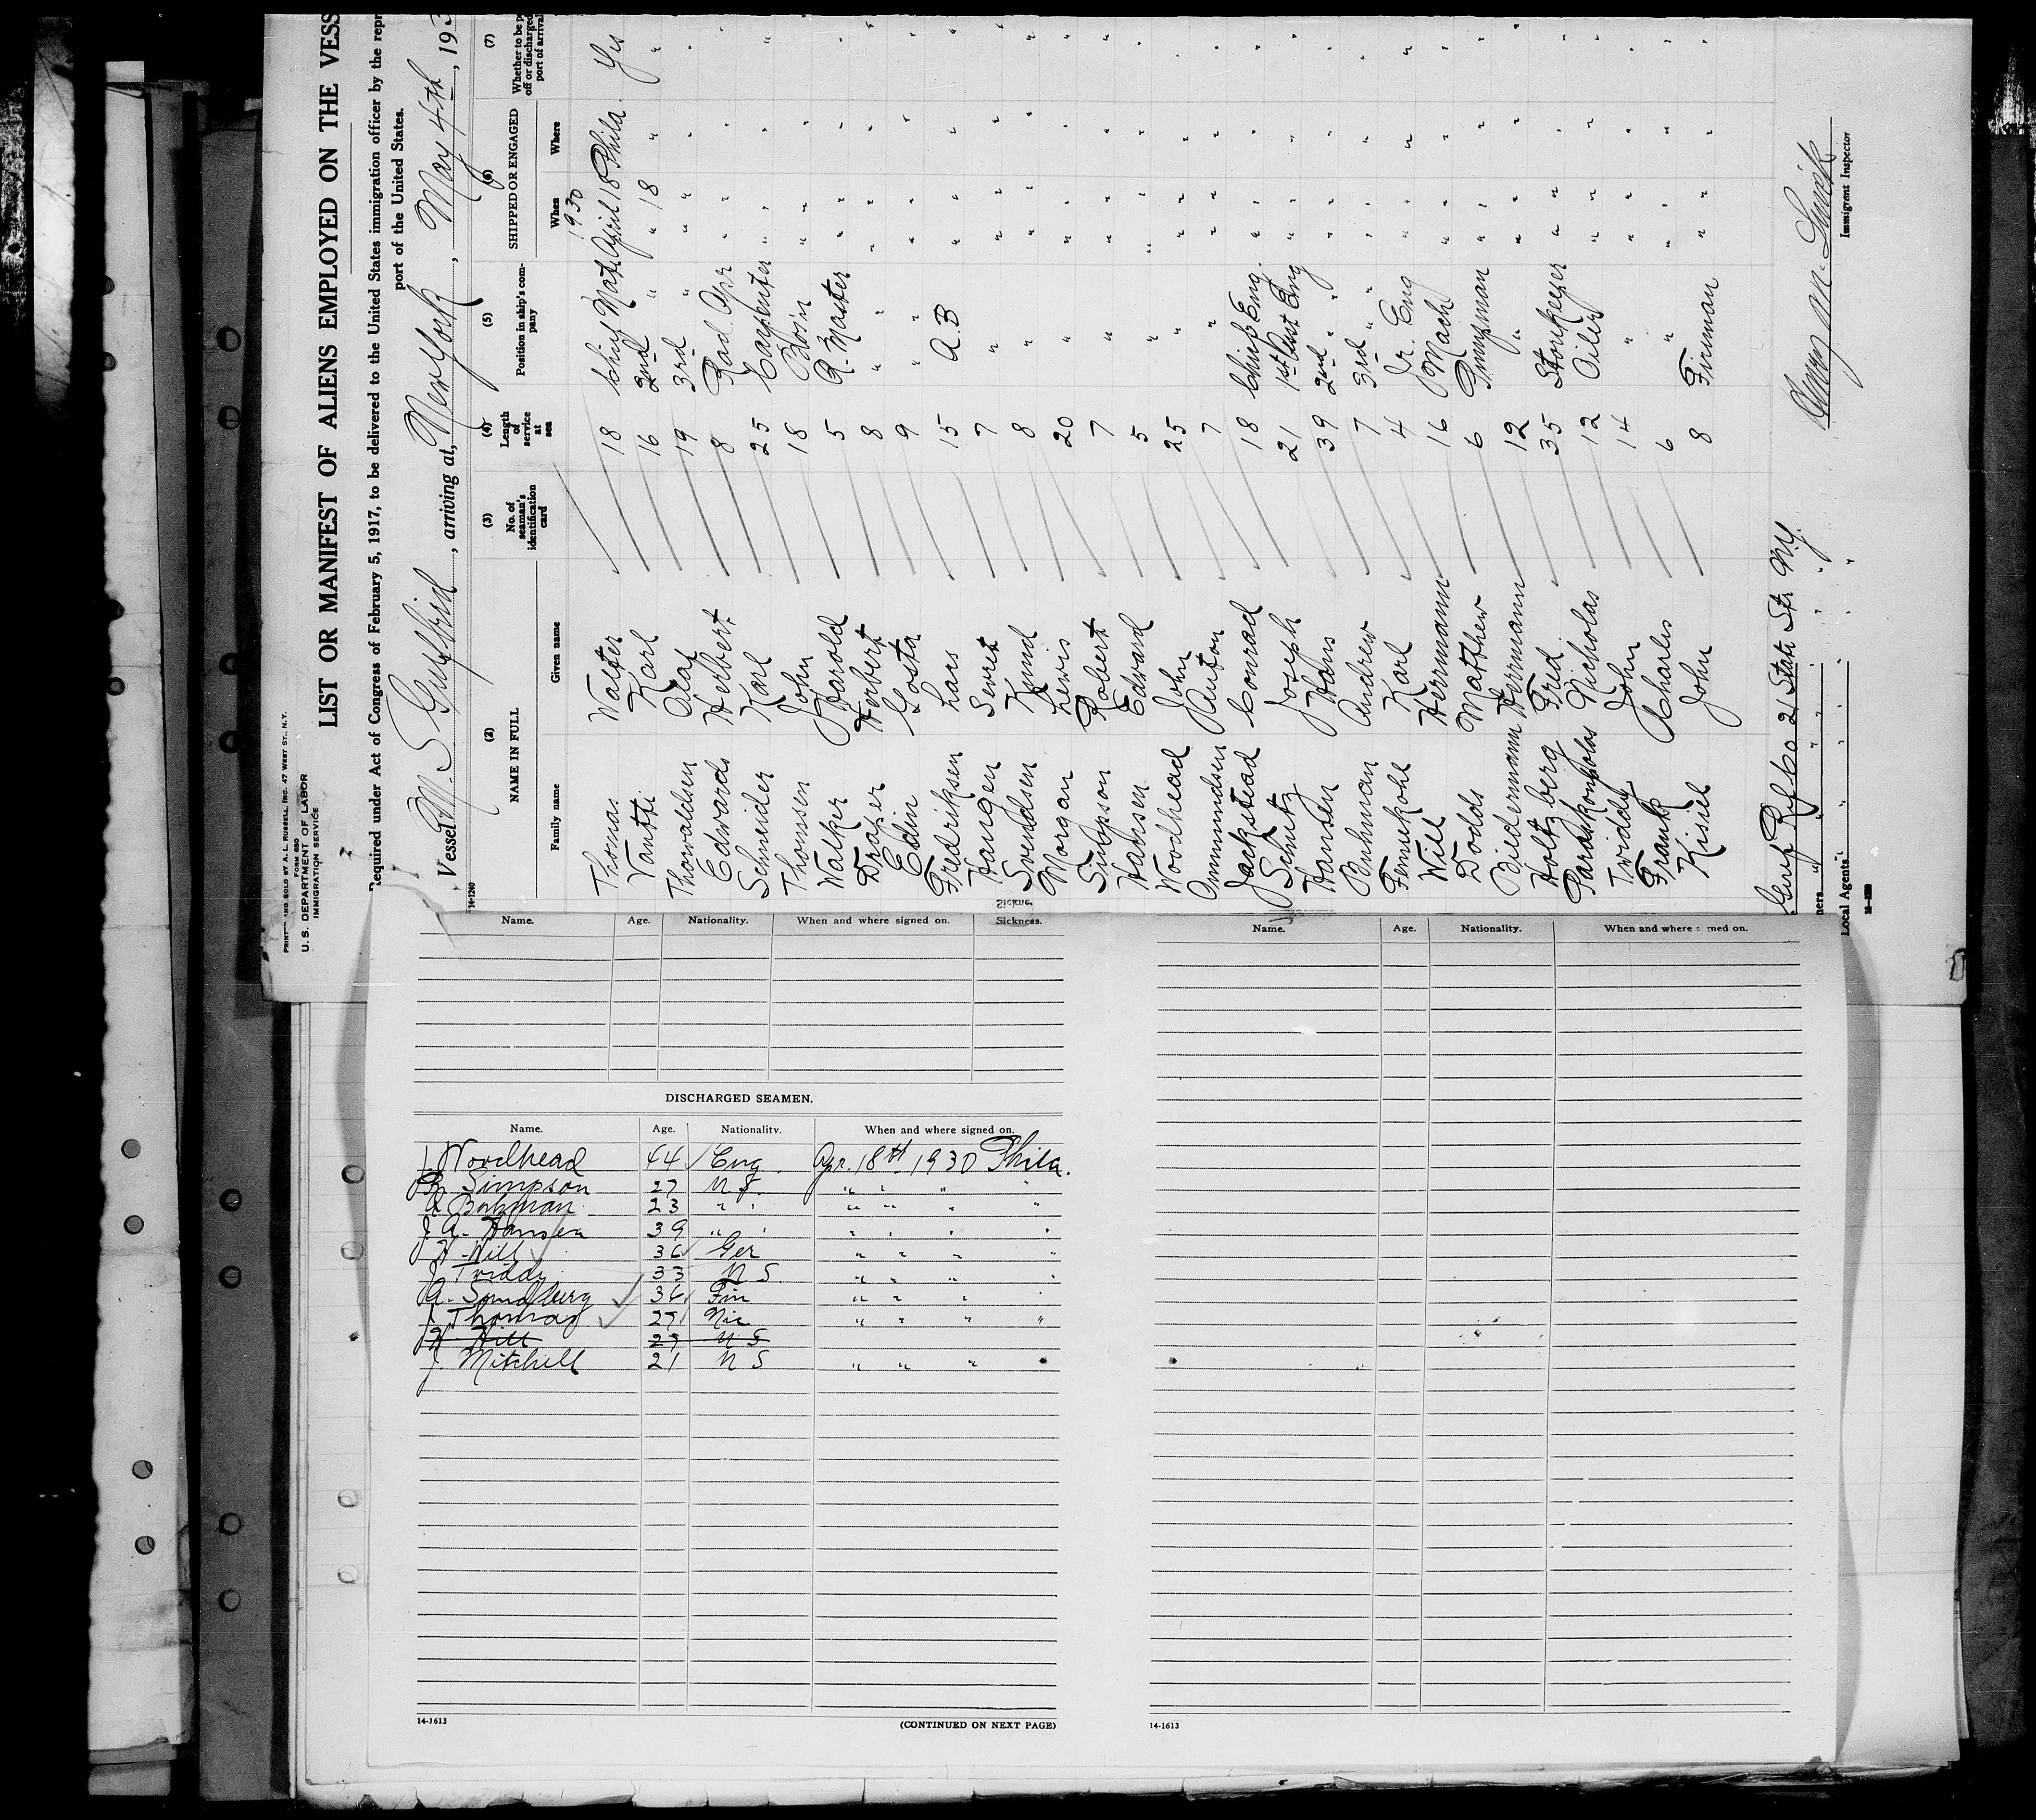 PRINTED AND SOLD BY A. L. RUSSELL, INC. 47 WEST ST., N.Y.
FORM 680
U. S. DEPARTMENT OF LABOR
IMMIGRATION SERVICE
LIST OR MANIFEST OF ALIENS EMPLOYED ON THE VESS
Required under Act of Congress of February 5, 1917, to be delivered to the United States immigration officer by the repr
port of the United States.
Vessel M.S Gulfbird, arriving at, New York, May 4th, 193
14-1240
(2) (3) (4) (5) (6) (7)
NAME IN FULL
No. of seaman's identification card
Length of service at sea
Position in ship's company
SHIPPED OR ENGAGED
Whether to be p off or discharged port of arrival
Family name Given name When Where
1930
Thomas Walter 18 Chief Mate April 18 Phila. Yes
Vantti Karl 16 2nd " " 18 " "
Thowaldsen Olaf 19 3rd " " " " "
Edwards Herbert 8 Rad. Opr " " " "
Schneider Karl 25 Carpenter " " " "
Thomsen John 18 Bosin " " " "
Walker Harold 5 Q. Master " " " "
Draper Herbert 8 " " " " "
Edin Gosta 9 " " " " "
Fredriksen Laas 15 A.B " " " "
Haugen Severt 7 " " " " "
Svendsen Knud 8 " " " " "
Morgan Lewis 20 " " " " "
Simpson Robert 7 " " " " "
Hansen Edvard 5 " " " " "
Woodhead John 25 " " " " "
Ommundsen Anton 7 " " " " "
Jackstead Conrad 18 Chief Eng. " " " "
Schutz Joseph 21 1st Asst Eng " " " "
Hansen Hans 39 2nd " " " " " "
Buhman Andrew 7 3rd " " " " " "
Fennekohl Karl 4 Jr. Eng " " " "
Will Hermann 16 Mach " " " "
Dodds Matthew 6 Pumpman " " " "
Biedermann Herrmann 12 " " " " "
Holtzberg Fred 35 Storekeeper " " " "
Nicholas 12 Oiler " " " "
Twiddy John 14 " " " " "
Frank Charles 6 " " " " "
Kisiel John 8 Fireman " " " "
Gulf Rif Co 21 State St. N.Y.
ners " " " " "
Local Agents " " " " "
Immigrant Inspector
Name. Age. Nationality. When and where signed on. Sickness.
DISCHARGED SEAMEN.
Name. Age. Nationality. When and where signed on.
J. Woodhead 44 Eng. Apr. 18th 1930 Phila.
R. Simpson 27 U.S. " " " "
A. Buhman 23 " " " " " "
J. A. Hansen 39 " " " " " "
H. Will 36 Ger " " " "
J. Twiddy 33 U S. " " " "
A. Sundberg 36 Fin " " " "
J. Thomas 27 Nic " " " "
H Hill 27 U S
J. Mitchell 21 U S " " " "
14-1613
(CONTINUED ON NEXT PAGE)
Name. Age. Nationality. When and where signed on.
14-1613